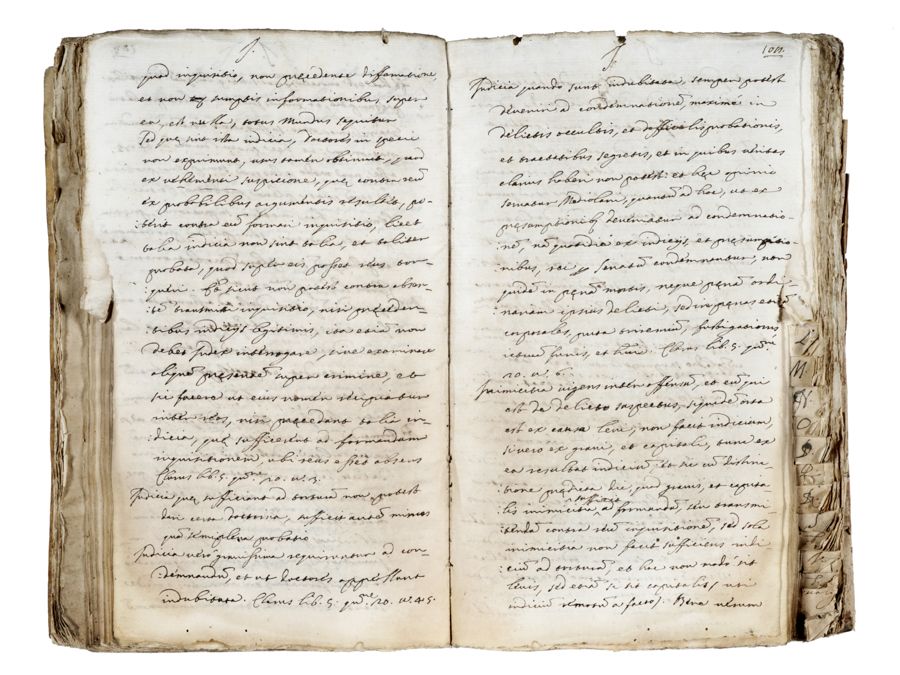 J.
quod inquisitio, non precedente difamatione,
et non sumptis informationibus super
ea, est nulla, totus Mundus sequitur
Sed quę sint ista indicia, Doctores in specie
non exprimunt, usus tamen obtinuit, quod
ex vehementi suspicione, quę contra reũ
ex probabilibus argumentis resultet, po-
:terit contra eũ formari inquisitio, licet
talia indicia non sint talia, et taliter
probata, quod super eis posset reus tor-
queri. Et sicut non potest contra absen-
:tẽ transmitti inquisitio, nisi preceden-
:tibus indicijs legitimis, ita etiã non
debet Judex interrogare, sive examinare
aliquẽ presentẽ super crimine, et
sic facere ut eius nomen recipiatur
inter reos, nisi precedant talia in-
:dicia, quę sufficerent ad formandam
inquisitionem ubi reus esset absens
Clarus lib. 5. qũne. 20. n. 3.
Indicia quę sufficiant ad torturã non potest
dari certa doctrina, sufficit autẽ minus
quã semiplena probatio
Indicia verò gravissima requiruntur ad con-
:demnandũ, et ut doctores appellant
indubitata. Clarus lib. 5. qũne. 20. n. 4. 5.
J.
Indicia quando sunt indubitata semper potest
deveniri ad condemnationẽ, maxime in
delictis occultis, et difficilis probationis,
et tractatibus secretis, et in quibus veritas
clarius haberi non potest: et hęc opinio
servatur Mediolani, quantũ ad hoc, ut ex
presumptionibꝫ deveniatur ad condemnatio-
nẽ, nã quotidie ex indicijs, et presumptio-
nibus, rei p Senatũ condemnantur, non
quidẽ in pęnã mortis, neque pęnã ordi-
nariam ipsius delicti, sed in penas
corporales, puta triremiũ, fustigationis
ictuũ funis, et huiꝰ. Clarus lib. 5. qũne
20. n. 6.
Inimicitia vigens inter offensũ, et eũ qui
est de delicto suspectus, siquidẽ orta
est ex causa levi, non facit indicium
si vero ex gravi, et capitali, tunc ex
ea resultat indiciũ et sic cũ distinc-
tione predicta dic, quod gravis, et capita-
lis inimicitia sufficit ad formandã, seu transmi-
:tendã contra reũ inquisitionẽ, sed sola
inimicitia non facit sufficiens indi-
:cium ad torturã et hoc non modo si sit
levis, sed etiã si sit capitalis, uti
indiciũ remotũ a facto. Bene verum